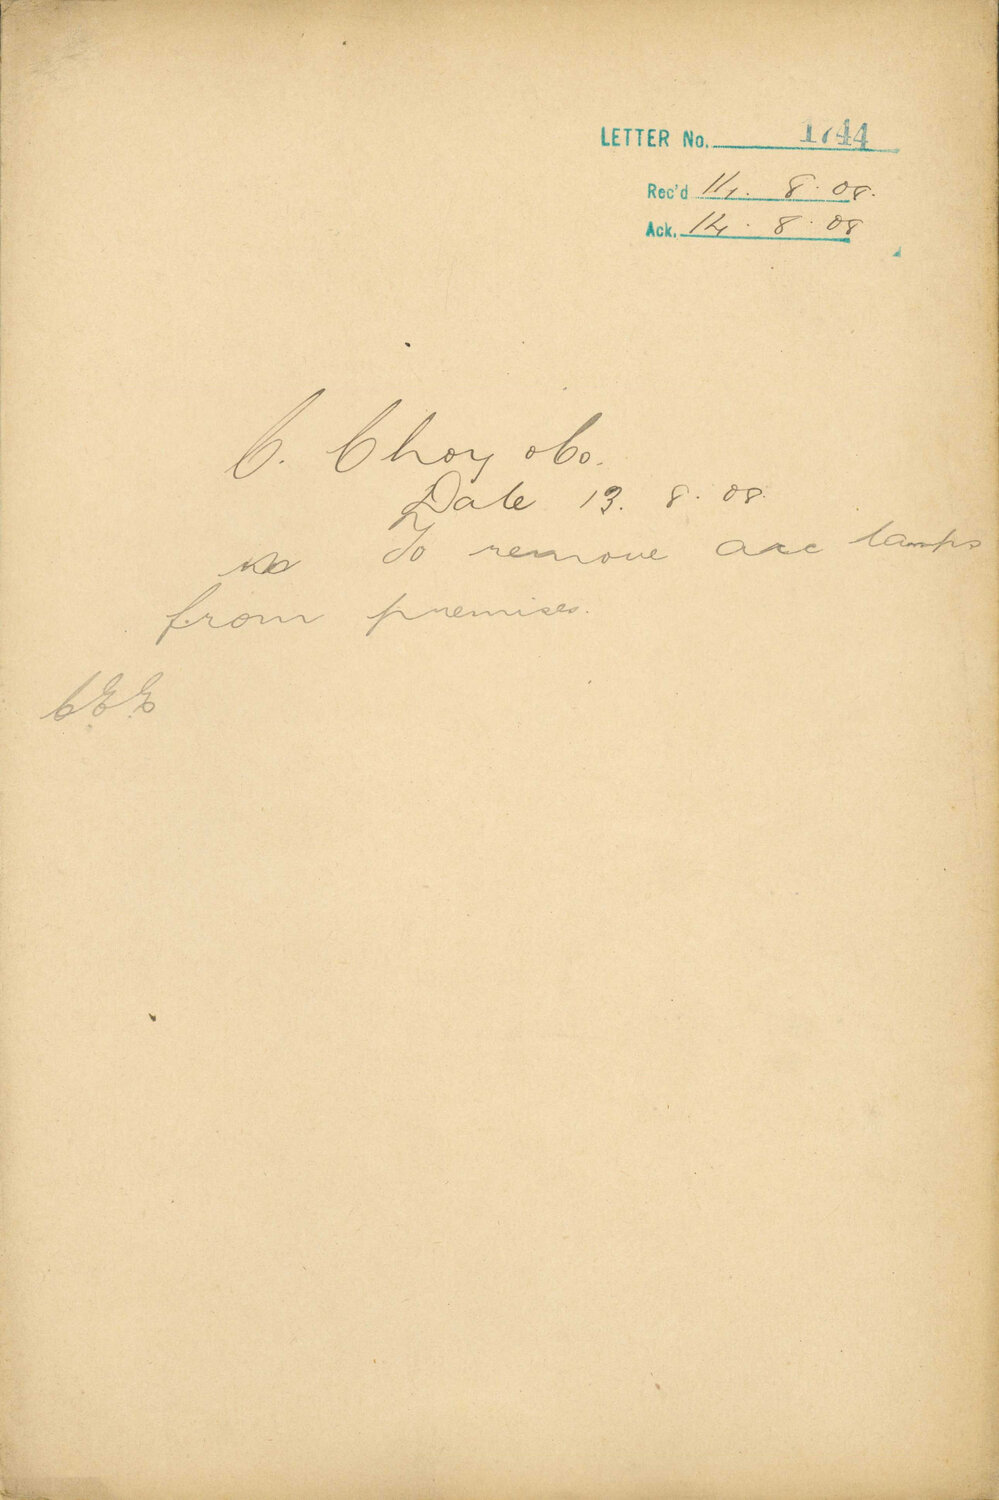 LETTER No. 1744
Rec'd 14. 8. 08.
Ack. 14. 8. 08
C. Choy & Co.
Date 13. 8. 08.
To remove arc lamps
from premises.
CEE